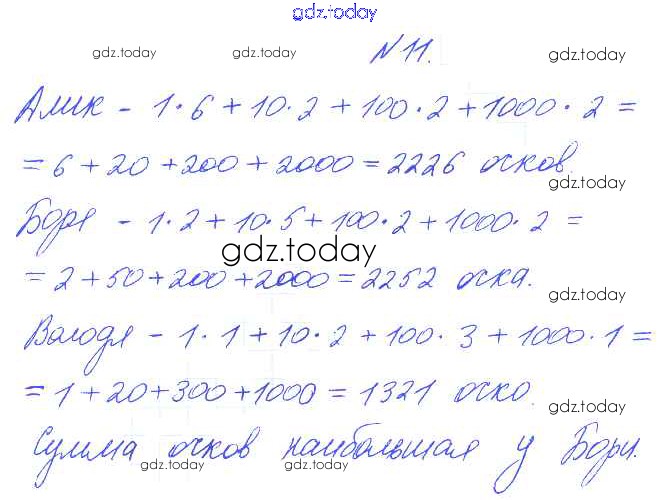 gdz.today
N 11.
gdz.today gdz.today gdz.today
Алик - 1·6+10·2+100·2+1000·2=
=6+20+200+2000=2226 очков.
gdz.today
Боря - 1·2+10·5+100·2+1000·2=
gdz.today
=2+50+200+2000=2252 очка.
gdz.today
Володя - 1·1+10·2+100·3+1000·1=
=1+20+300+1000=1321 очко.
gdz.today
Сумма очков наибольшая у Бори.
gdz.today gdz.today gdz.today